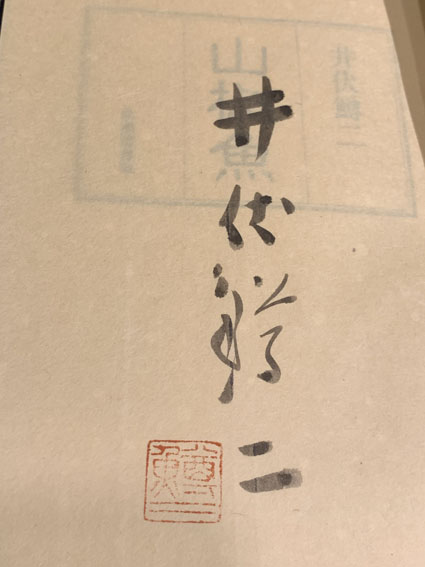 井伏鱒二
山椒魚
井伏鱒二
鱒二